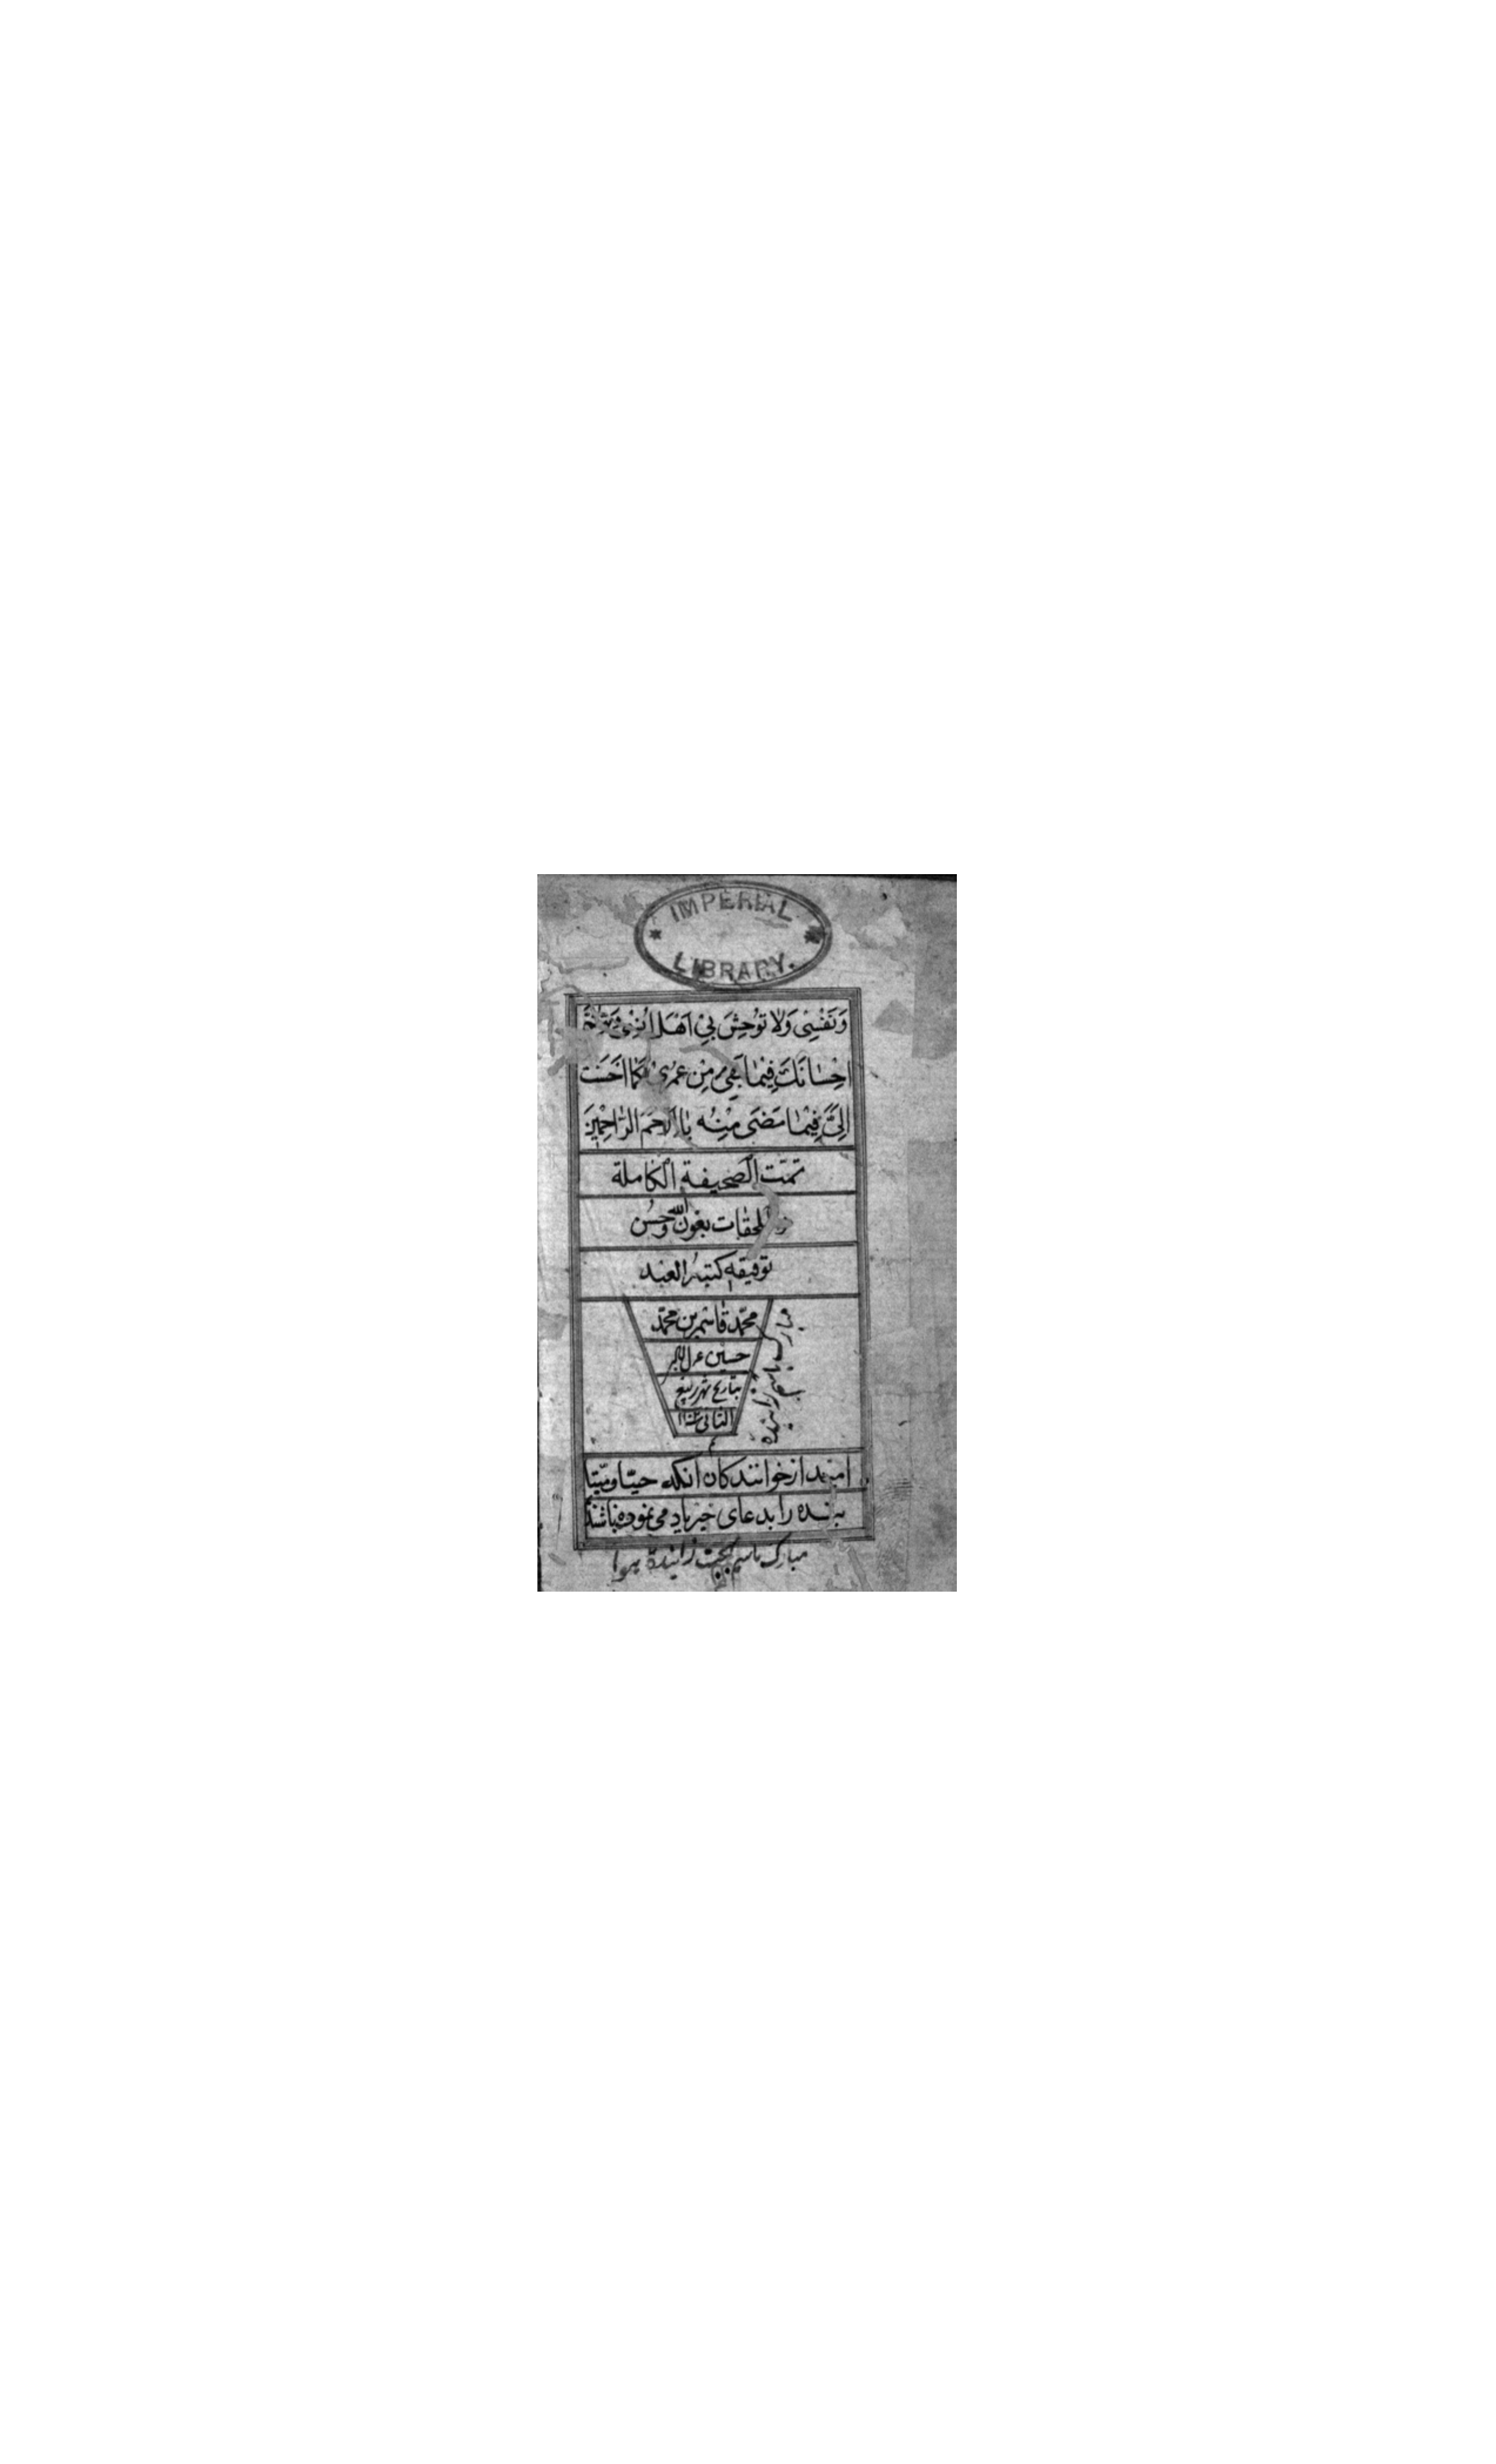 IMPERIAL
LIBRARY.
وَنَفْسِی وَلَا تُوحِشَ بِي اَهْلَ اُنْسِی وَتَمِّمْ
اِحْسَانَكَ فِیْمَا بَقِیَ مِنْ عُمْرِیْ كَمَا اَحْسَنْتَ
اِلَیَّ فِیْمَا مَضَی مِنْهُ یَا اَرْحَمَ الرَّاحِمِیْنَ
تمّت الصحیفة الکاملة
والملحقات بعون الله وحسن
توفیقه کتبه العبد
محمّد قاسم بن محمّد
حسین
بتاریخ شهر ربیع
الثانی
امید از خوانندکان آنکه حیّا و میّتا
بنده را بدعای خیر یاد می نموده باشند
مبارک